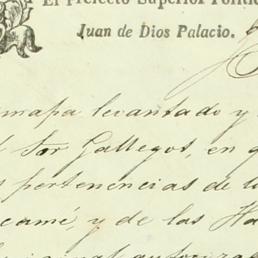 El Prefecto Superior Politic
Juan de Dios Palacio.
mapa levantado y
Sor Gallegos, en q
pertenencias de lo
y de las Ha